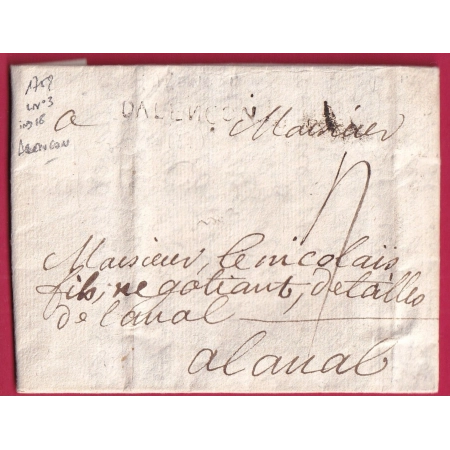 1758
LN°3
ind 16
ALENCON
DALENCON
a Monsieur
4
Monsieur, le nicolais
fils, negotiant, detoilles
de laual
a laual